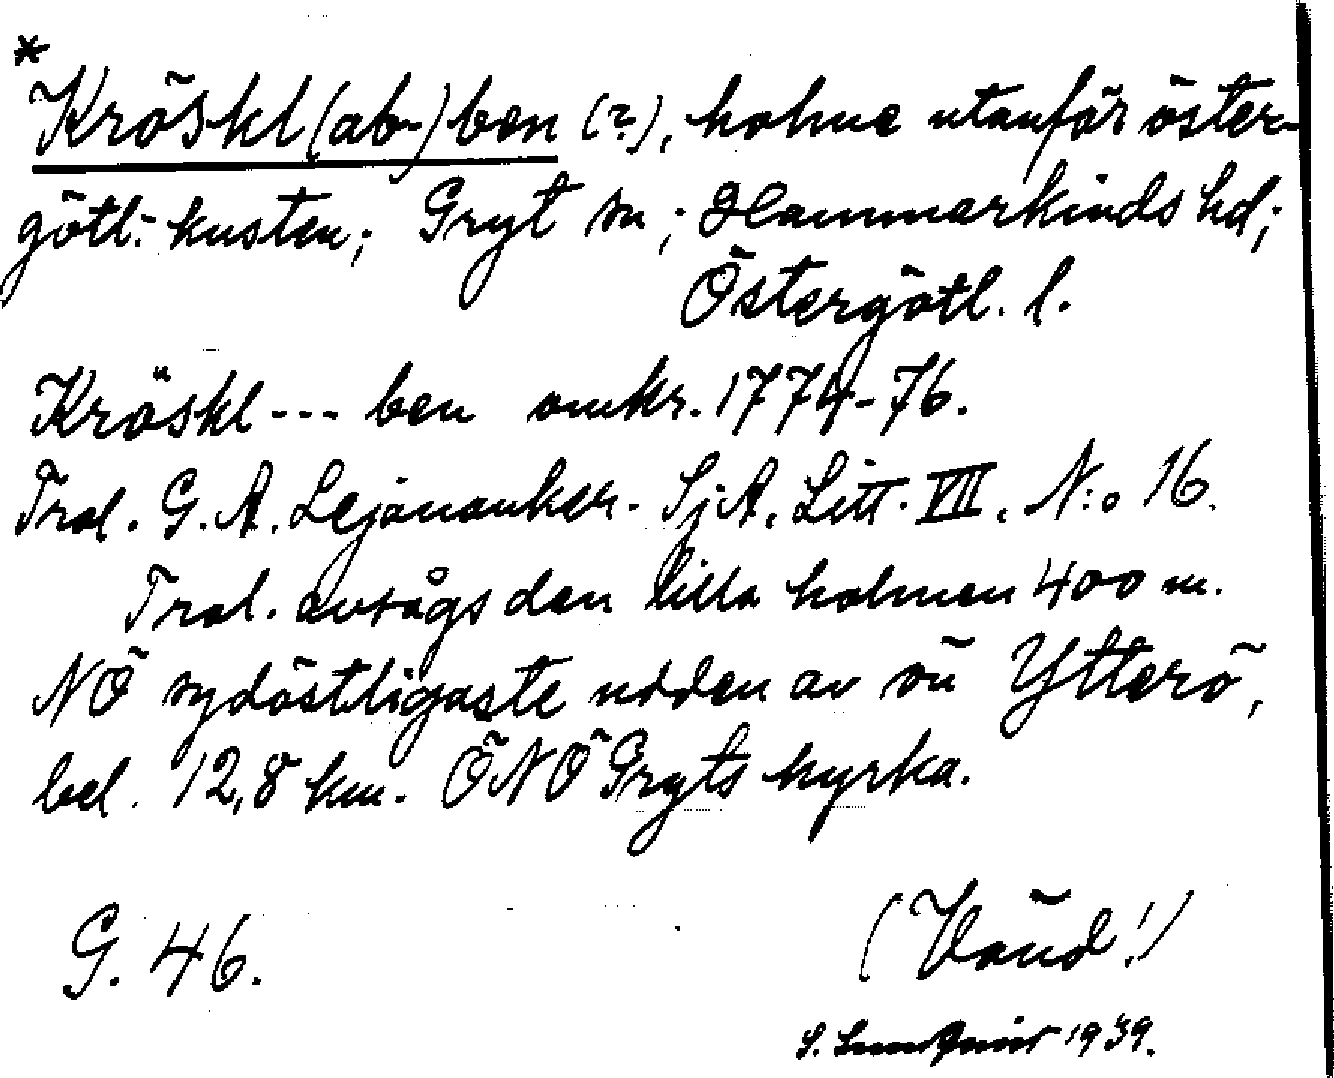 *
Kröskl(ab-)ben (?), holme utanför öster-
götl:kusten; Gryt sn; Hammarkinds hd;
Östergötl. l.
Kröskl---ben omkr. 1774-76.
Trol. G. A. Lejonanker. SjA. Litt. VII. N:o 16.
Trol. avsågs den lilla holmen 400 m.
NÖ sydöstligaste udden av ön Ytterö,
bel. 12,8 km. ÖNÖ Gryts kyrka.
G. 46. (Vänd!)
S. 1939.